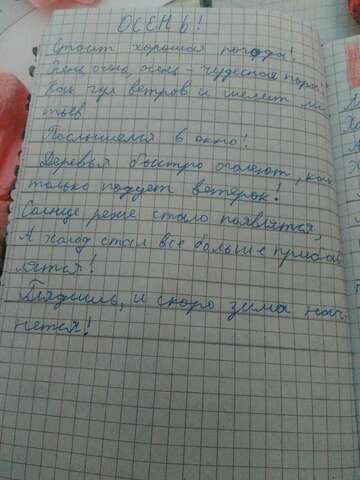 ОСЕНЬ!
Стоит хорошая погода!
осень осень - чудесная пора!
гул ветров и шелест ли
тьев
Послышелся в окно!
Деревья быстро оголеют, как
только подует ветерок!
Солнце реже стало появлятся,
А холод стал все больше прибав
лятся!
Глядишь, и скоро зима нач-
нется!